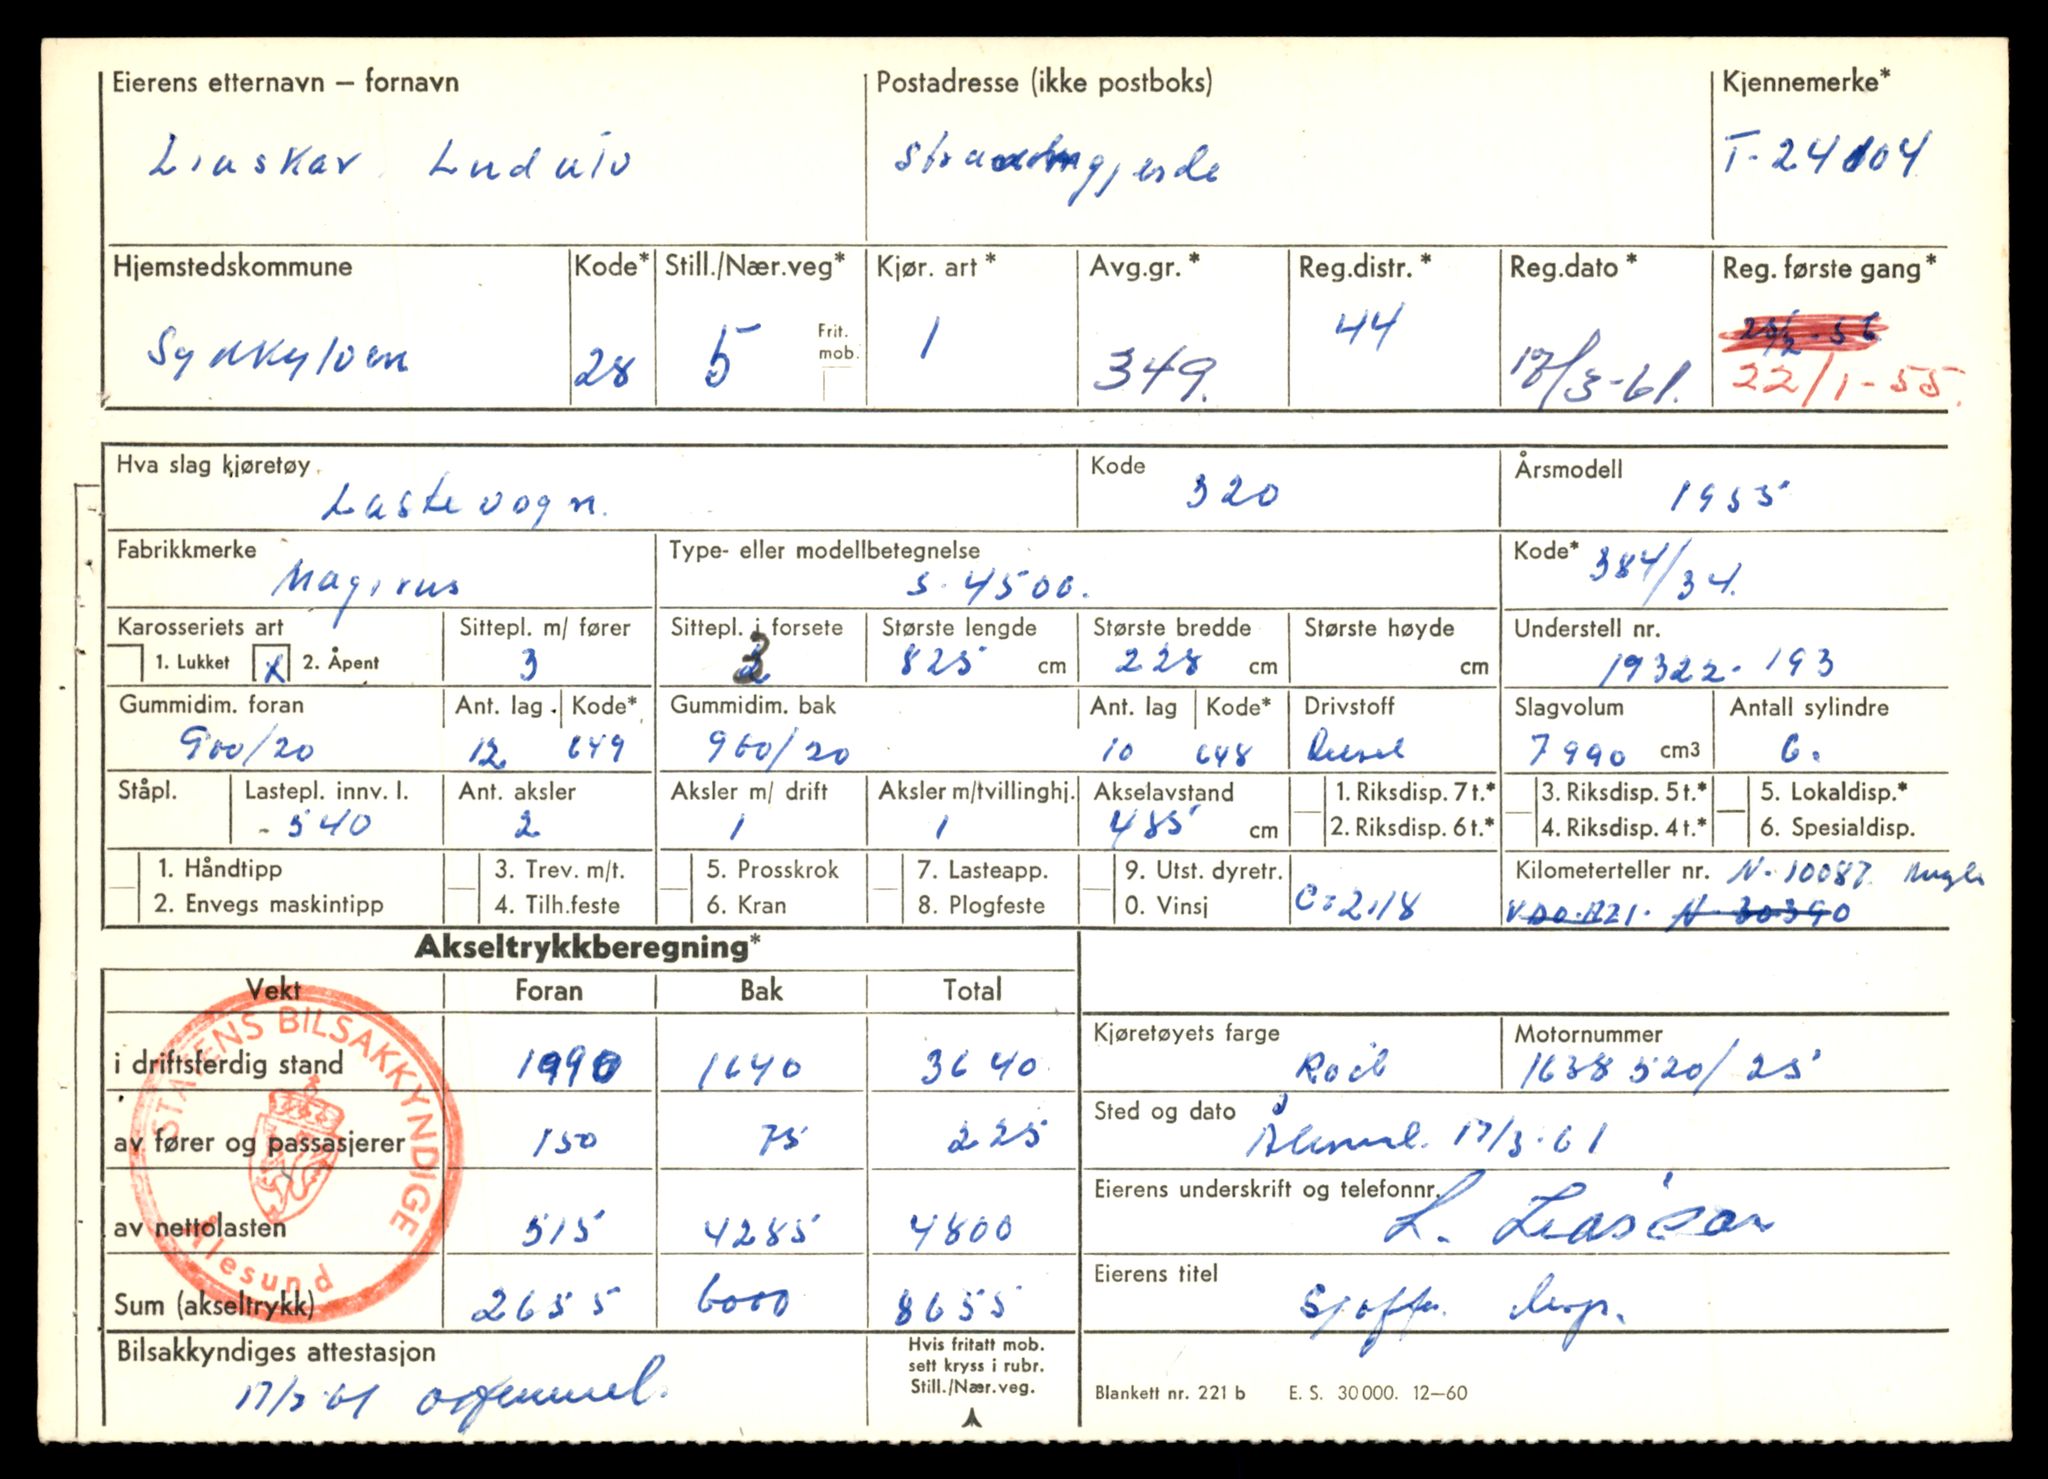 Eierens etternavn – fornavn Postadresse (ikke postboks) Kjennemerke*
Liaskar Ludulv T-24104
Hjemstedskommune Kode* Still./Nær.veg* Kjør. art* Avg.gr.* Reg.distr.* Reg.dato* Reg. første gang*
Sydkylven 28 5 Frit. mob. 1 349. 44 17/3-61. 22/1-55.
Hva slag kjøretøy Kode Årsmodell
Lastevogn. 320 1955
Fabrikkmerke Type- eller modellbetegnelse Kode*
Magirus S. 4500. 384/34.
Karosseriets art Sittepl. m/ fører Sittepl. i forsete Største lengde Største bredde Største høyde Understell nr.
1. Lukket X 2. Åpent 3 3 825 cm 228 cm cm 19322-193
Gummidim. foran Ant. lag. Kode* Gummidim. bak Ant. lag Kode* Drivstoff Slagvolum Antall sylindre
900/20 12 649 900/20 10 648 Diesel 7990 cm3 6.
Ståpl. Lastepl. innv. l. Ant. aksler Aksler m/ drift Aksler m/tvillinghj. Akselavstand 1. Riksdisp. 7 t.* 3. Riksdisp. 5 t.* 5. Lokaldisp.*
540 2 1 1 485 cm 2. Riksdisp. 6 t.* 4. Riksdisp. 4 t.* 6. Spesialdisp.
1. Håndtipp 3. Trev. m/t. 5. Prosskrok 7. Lasteapp. 9. Utst. dyretr. Kilometerteller nr. N-10087.
2. Envegs maskintipp 4. Tilh.feste 6. Kran 8. Plogfeste 0. Vinsj C=2,18 N-30390
Akseltrykkberegning*
Vekt Foran Bak Total
i driftsferdig stand 1990 1640 3640
Kjøretøyets farge Motornummer
1638520/25
av fører og passasjerer 150 75 225
Sted og dato
17/3-61
av nettolasten 515 4285 4800
Eierens underskrift og telefonnr.
L. Liaskar
Sum (akseltrykk) 2655 6000 8655
Eierens titel
STATENS BILSAKKYNDIGE
Ålesund
Bilsakkyndiges attestasjon
17/3-61
Hvis fritatt mob.
sett kryss i rubr.
Still./Nær.veg.
Blankett nr. 221 b E. S. 30 000. 12–60